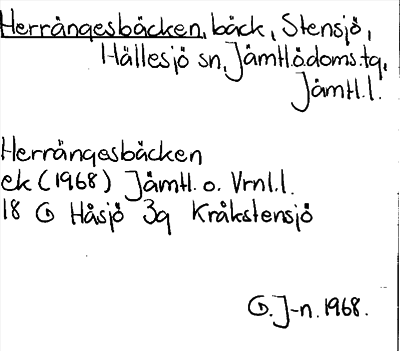 Herrångesbäcken, bäck, Stensjö,
Hällesjö sn, Jämtl.ö.doms.tg,
Jämtl.l.
Herrångesbäcken
ek (1968) Jämtl. o. Vrnl.l.
18 G Håsjö 3g Kråkstensjö
G. J-n. 1968.